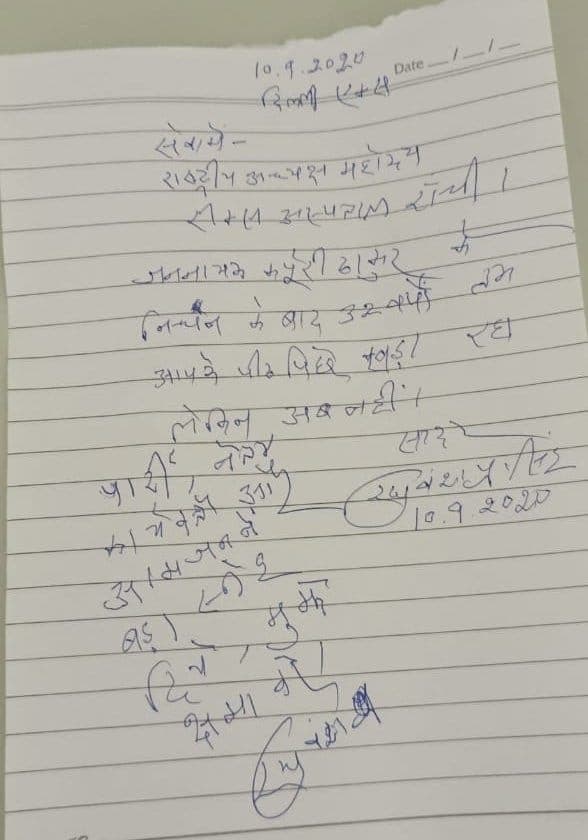 10.9.2020
Date __/__/__
दिल्ली एम्स
सेवा में-
राष्ट्रीय अध्यक्ष महोदय
रिम्स अस्पताल रांची।
जननायक कर्पूरी ठाकुर के
निधन के बाद 32 वर्षों तक
आपके पीठ पिछे खड़ा रहा
लेकिन अब नहीं।
पार्टी, नेता,
कार्यकर्ता और
आमजन ने
बड़ा स्नेह
दिये, मुझे
क्षमा करें।
सादर
रघुवंश प्रः सिंह
10.9.2020
रघुवंश प्र